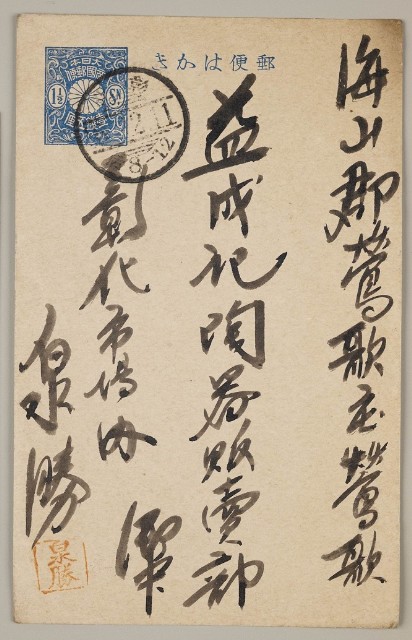 郵便はかき
大日本
帝國郵便
1½
Sn
壹錢五厘
2.11
8-12
海山郡鶯歌庄鶯歌
益成記陶器販賣部
御中
彰化市場内
泉勝
泉勝